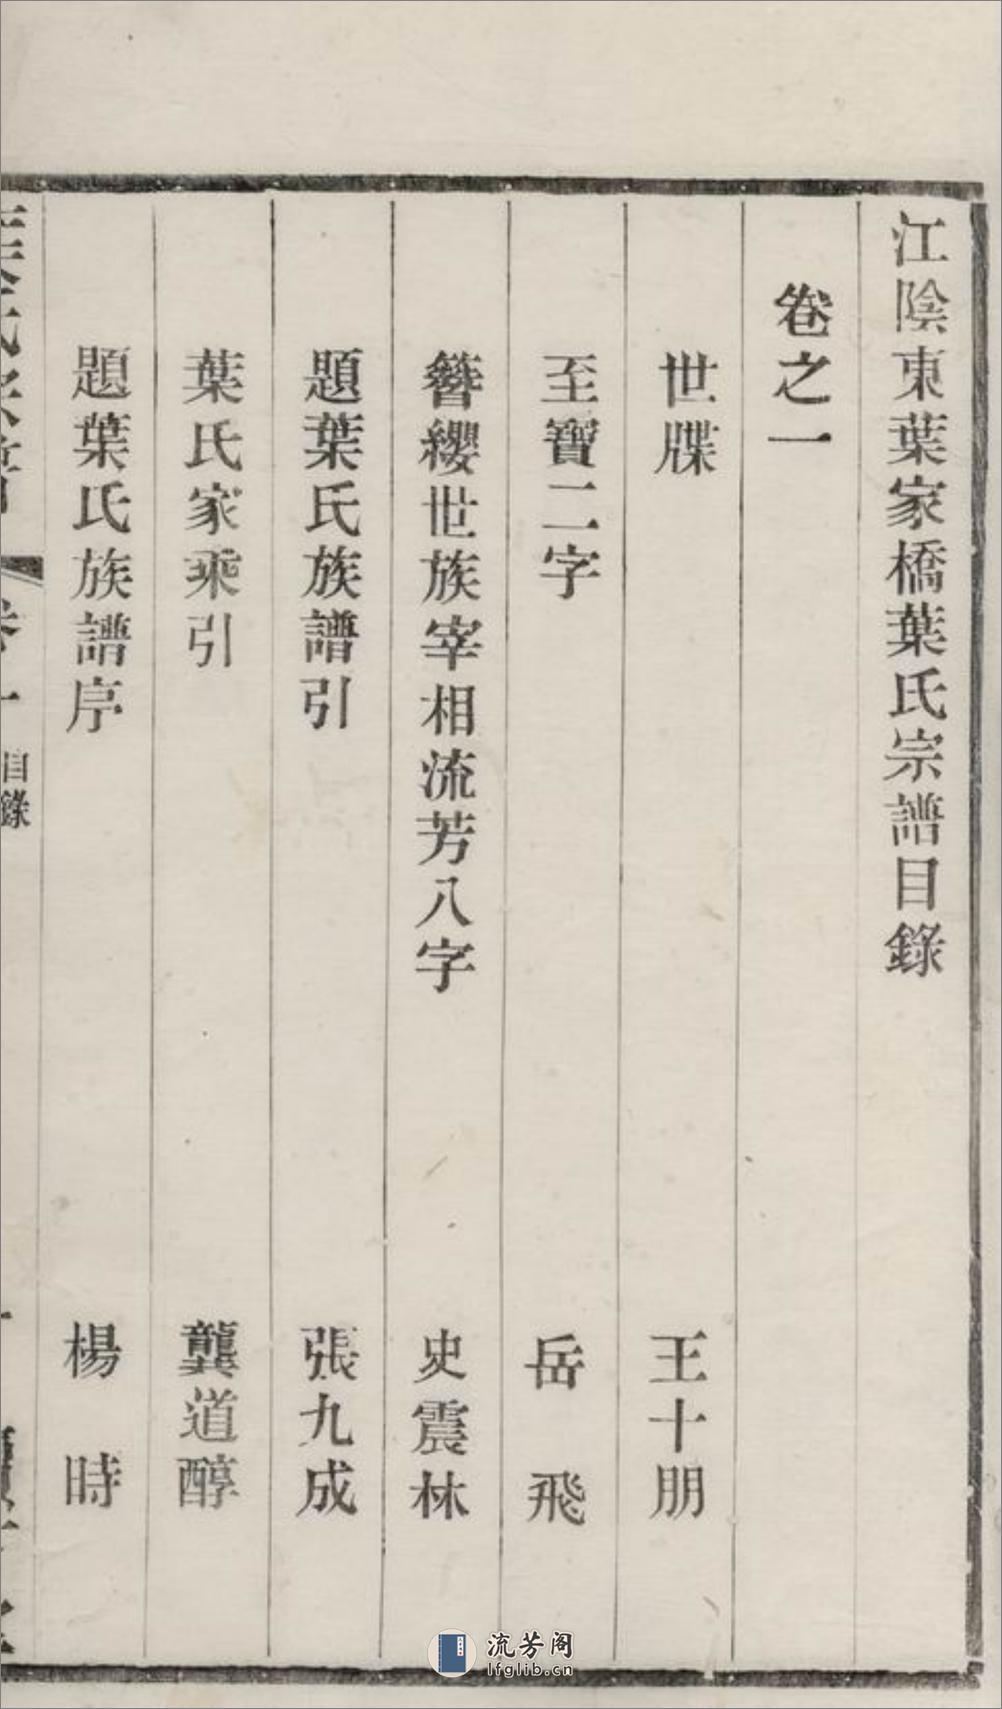 江陰東葉家橋葉氏宗譜目錄
卷之一
世牒 王十朋
至寶二字 岳飛
簪纓世族宰相流芳八字 史震林
題葉氏族譜引 張九成
葉氏家乘引 龔道醇
題葉氏族譜序 楊時
目錄
流芳阁
lfglib.cn